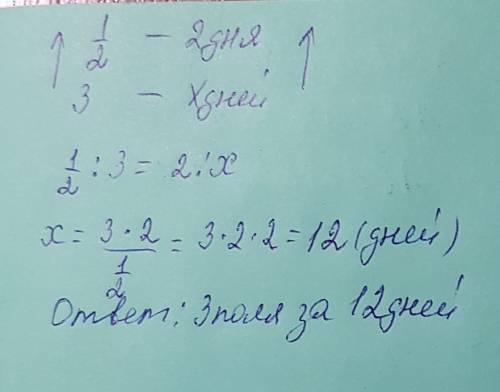 ↑ 1/2 — 2 дня ↑
3 — x дней
1/2 : 3 = 2 : x
x = (3 · 2)/(1/2) = 3 · 2 · 2 = 12 (дней)
Ответ: 3 поля за 12 дней